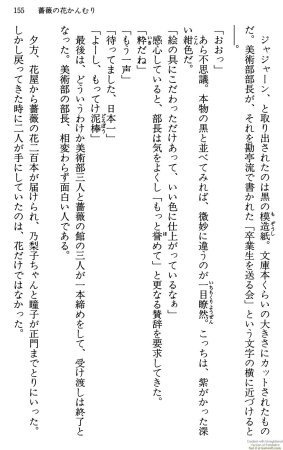 155　薔薇の花かんむり
ジャジャーン、と取り出されたのは黒の模造紙。文庫本くらいの大きさにカットされたもの
だ。美術部部長が、それを勘亭流で書かれた「卒業生を送る会」という文字の横に近づけると
――。
「おおっ」
あら不思議。本物の黒と並べてみれば、微妙に違うのが一目瞭然。こっちは、紫がかった深
い紺色だ。
「絵の具にこだわっただけあって、いい色に仕上がっているなぁ」
感心していると、部長は気をよくし「もっと誉めて」と更なる賛辞を要求してきた。
「粋だね」
「もう一声」
「待ってました、日本一」
「よーし、もってけ泥棒」
最後は、どういうわけか美術部三人と薔薇の館の三人が一本締めをして、受け渡しは終了と
なった。美術部の部長、相変わらず面白い人である。
夕方、花屋から薔薇の花二百本が届けられ、乃梨子ちゃんと瞳子が正門までとりにいった。
しかし戻ってきた時に二人が手にしていたのは、花だけではなかった。